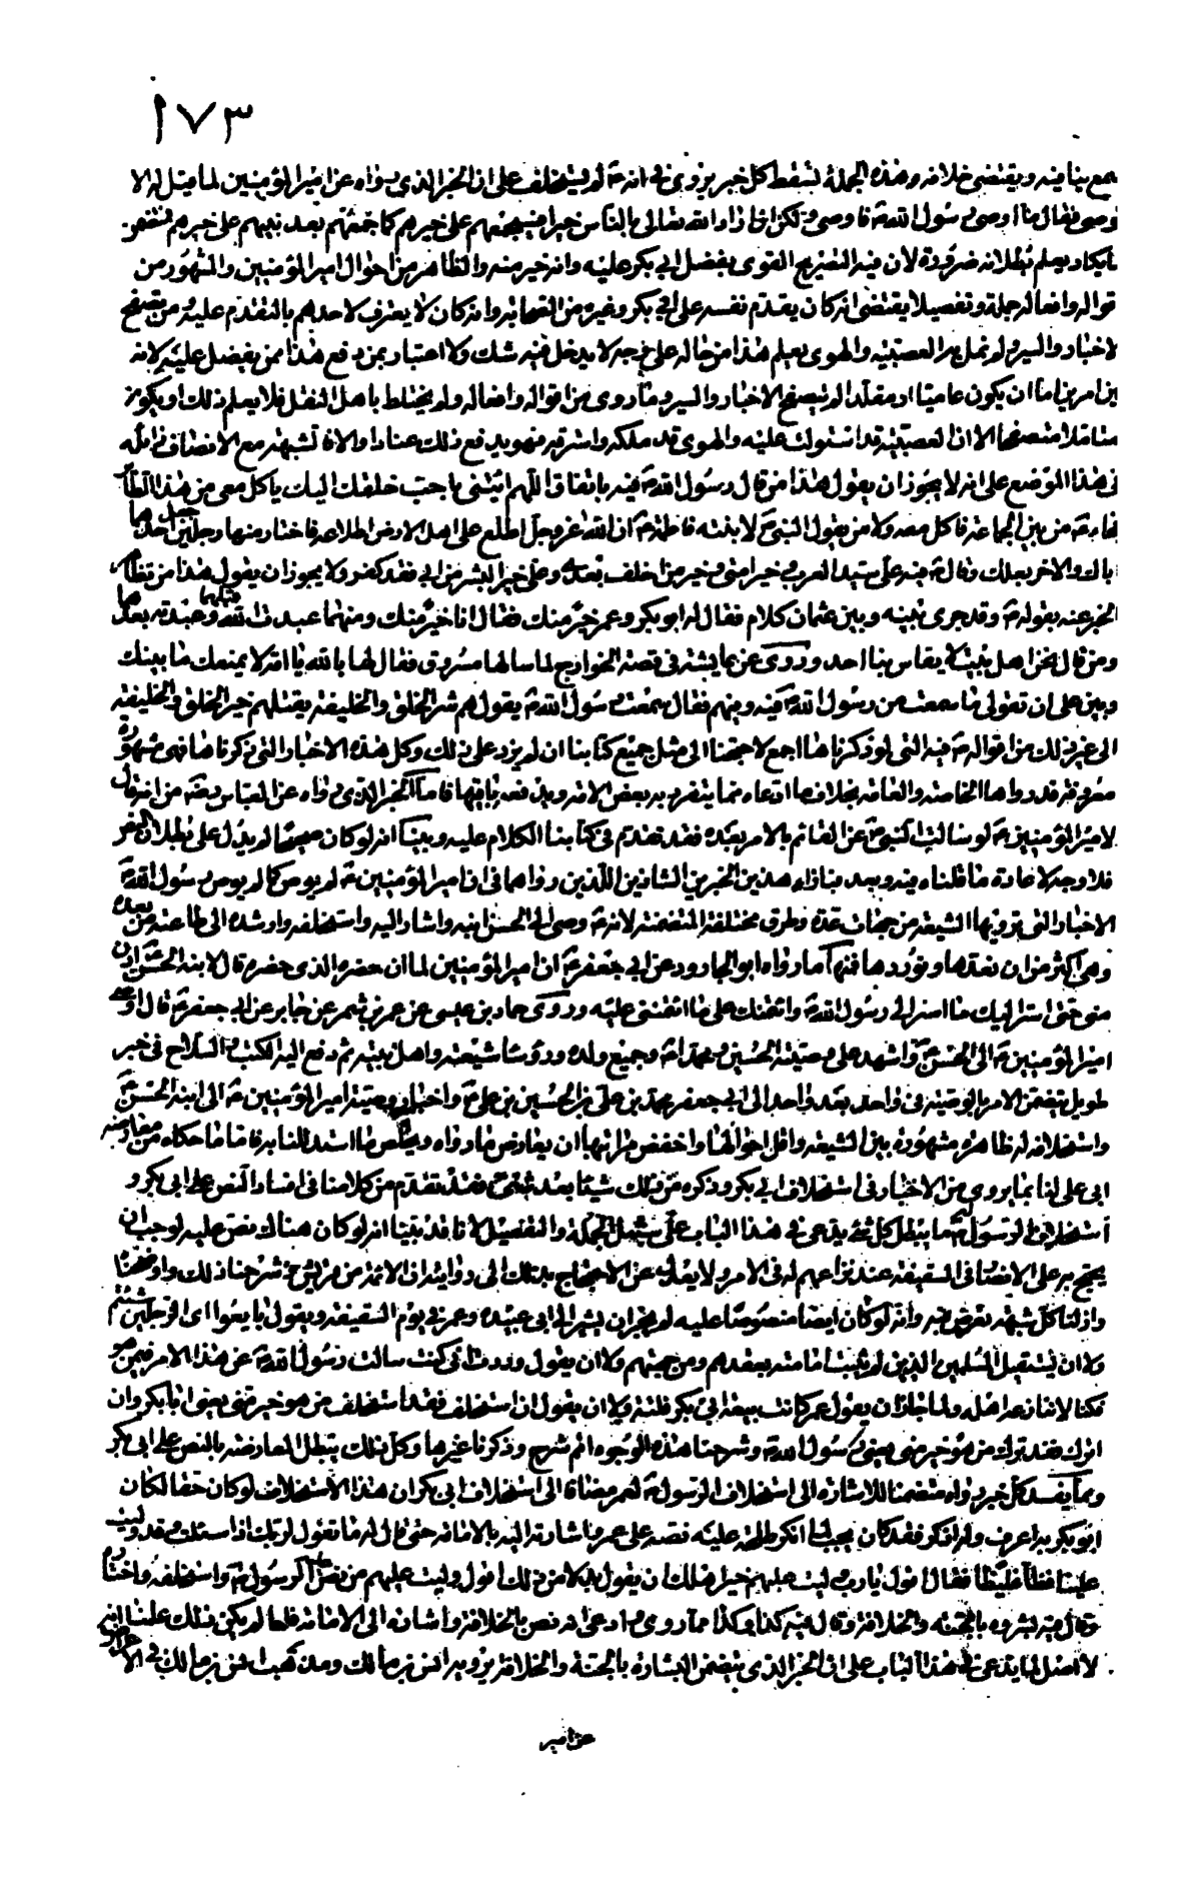 ١٧٣
جمع ينافيه ويقتضي خلافه وهذه الجملة تسقط كل خبر يروى في انه ع لم يستخلف على ان الخبر الذي رواه عن امير المؤمنين لما قيل له الا
توصي فقال ما اوصى رسول الله ص فاوصي ولكن اذا اراد الله تعالى بالناس خيرا فسيجمعهم على خيرهم كما جمعهم بعد نبيهم على خيرهم فتضمن
ما يكاد يعلم بطلانه ضرورة لان فيه التصريح القوي بفضل ابي بكر عليه وانه خير منه والظاهر من احوال امير المؤمنين والمشهور من
قواله وافعاله جملة وتفصيلا يقتضي انه كان يقدم نفسه على ابي بكر وغيره من الصحابة وانه كان لا يعترف لاحدهم بالتقدم عليه ومن تصفح
لاخبار والسير ولم تمل به العصبية والهوى يعلم هذا من حاله على وجه لا يدخل فيه شك ولا اعتبار بمن دفع هذا ممن يفضل عليه لانه
بين امرين اما ان يكون عاميا او مقلدا لم يتصفح الاخبار والسير وما روي من اقواله وافعاله ولم يختلط باهل النقل فلا يعلم ذلك او يكون
متاملا متصفحا الا ان العصبية قد استولت عليه والهوى قد ملكه واسترقه فهو يدفع ذلك عنادا والا فالشبهة مع الانصاف زائلة
في هذا الموضع على انه لا يجوز ان يقول هذا من قال رسول الله ص فيه باتفاق اللهم ائتني باحب خلقك اليك ياكل معي من هذا الطائر
فجاء ع من بين الجماعة فاكل معه ولا من يقول النبي ص لابنته فاطمة ع ان الله عز وجل اطلع على اهل الارض اطلاعة فاختار منها رجلين جعل احدهما
اباك والاخر بعلك وقال ص فيه علي سيد العرب وخير امتي وخير من اخلف بعدي وعلي خير البشر من ابى فقد كفر ولا يجوز ان يقول هذا من تظاهر
الخبر عنه بقوله ع وقد جرى بينه وبين عثمان كلام فقال له ابو بكر وعمر خير منك فقال انا خير منك ومنهما عبدت الله قبلهما وعبدته بعدهما
ومن قال نحن اهل بيت لا يقاس بنا احد وروي عن عايشة في قصة الخوارج لما سالها مسروق فقال لها بالله يا امه لا يمنعك ما بينك
وبين علي ان تقولي ما سمعت من رسول الله ص فيه وفيهم فقالت سمعت رسول الله ص يقول هم شر الخلق والخليقة يقتلهم خير الخلق والخليقة
الى غير ذلك من اقواله ص فيه التي لو ذكرناها اجمع لاحتجنا الى مثل جميع كتابنا ان لم يزد على ذلك وكل هذه الاخبار التي ذكرناها فهي مشهورة
معروفة قد رواها الخاصة والعامة بخلاف ما ادعاه مما يتفرد به بعض الامة ويدفعه باقيها فاما الخبر الذي رواه عن العباس رضه من انه قال
لامير المؤمنين ع لو سالت النبي ص عن القائم بالامر بعده فقد تقدم في كتابنا الكلام عليه وبينا انه لو كان صحيحا لم يدل على بطلان النص
فلا وجه لاعادة ما قلناه فيه وبعد فبازاء هذين الخبرين الشاذين اللذين رواهما في ان امير المؤمنين ع لم يوص كما لم يوص رسول الله ص
الاخبار التي ترويها الشيعة من جهات عدة وطرق مختلفة المتضمنة لانه ع وصى الى الحسن ابنه واشار اليه واستخلفه وارشده الى طاعته من بعده
وهي اكثر من ان نعدها ونوردها فمنها ما رواه ابو الجارود عن ابي جعفر ع ان امير المؤمنين لما ان حضره الذي حضره قال لابنه الحسن ع ادن
مني حتى اسر اليك ما اسر الي رسول الله ص وائتمنك على ما ائتمنني عليه وروى حماد بن عيسى عن عمر بن شمر عن جابر عن ابي جعفر ع قال اوصى
امير المؤمنين ع الى الحسن ع واشهد على وصيته الحسين ومحمدا ع وجميع ولده ورؤساء شيعته واهل بيته ثم دفع اليه الكتب والسلاح في خبر
طويل يتضمن الامر بالوصية في واحد بعد واحد الى ابي جعفر محمد بن علي بن الحسين بن علي ع واخبار وصية امير المؤمنين ع الى ابنه الحسن ع
واستخلافه له ظاهرة مشهورة بين الشيعة واقل احوالها واخفض مراتبها ان يعارض ما رواه ويخلص ما استدللنا به فاما ما حكاه من معارضة
ابي علي لنا بما يروى من الاخبار في استخلاف ابي بكر وذكره من ذلك شيئا بعد شيء فقد تقدم من كلامنا في افساد النص على ابي بكر و
استخلاف الرسول ص له ما يبطل كل شيء يدعى في هذا الباب على سبيل الجملة والتفصيل لانا قد بينا انه لو كان هناك نص عليه لوجب ان
يحتج به على الانصار في السقيفة عند نزاعهم له في الامر ولا يعدل عن الاحتجاج بذلك الى روايته ان الائمة من قريش وشرحنا ذلك واوضحناه
وازلنا كل شبهة تعرض فيه وانه لو كان ايضا منصوصا عليه لم يجز ان يشير الى ابي عبيدة وعمر في يوم السقيفة ويقول بايعوا اي الرجلين شئتم
ولا ان يستقيل المسلمين الذين لم تثبت امامته بعقدهم ومن جهتهم ولا ان يقول وددت اني كنت سالت رسول الله ص عن هذا الامر فيمن هو
فكنا لا ننازعه اهله ولما جاز ان يقول عمر كانت بيعة ابي بكر فلتة ولا ان يقول ان استخلف فقد استخلف من هو خير مني يعني ابا بكر وان
اترك فقد ترك من هو خير مني يعني رسول الله ص وشرحنا هذه الوجوه اتم شرح وذكرنا غيرها وكل ذلك يبطل المعارضة بالنص على ابي بكر
ومما يفسد كل خبر رواه متضمنا للاشارة الى استخلاف الرسول ص لعمر مضافا الى استخلاف ابي بكر ان هذا الاستخلاف لو كان حقا لكان
ابو بكر به اعرف وله اذكر فقد كان يجب لما انكر طلحة عليه نصه على عمر واشارته اليه بالامامة حتى قال له ما تقول لربك اذا سئلك وقد وليت
علينا فظا غليظا فقال اقول يا رب وليت عليهم خير اهلك ان يقول بدلا من ذلك اقول وليت عليهم من نص عليه الرسول ص واستخلفه واختاره
وقال فيه بشروه بالجنة والخلافة وقال فيه كذا وكذا مما روي وادعي انه نص بالخلافة واشارة الى الامامة فلما لم يكن ذلك علمنا انه
لا اصل لما يدعى في هذا الباب على ان الخبر الذي يتضمن البشارة بالجنة والخلافة يرويه انس بن مالك ومذهب انس بن مالك في الاعراض
عن امير